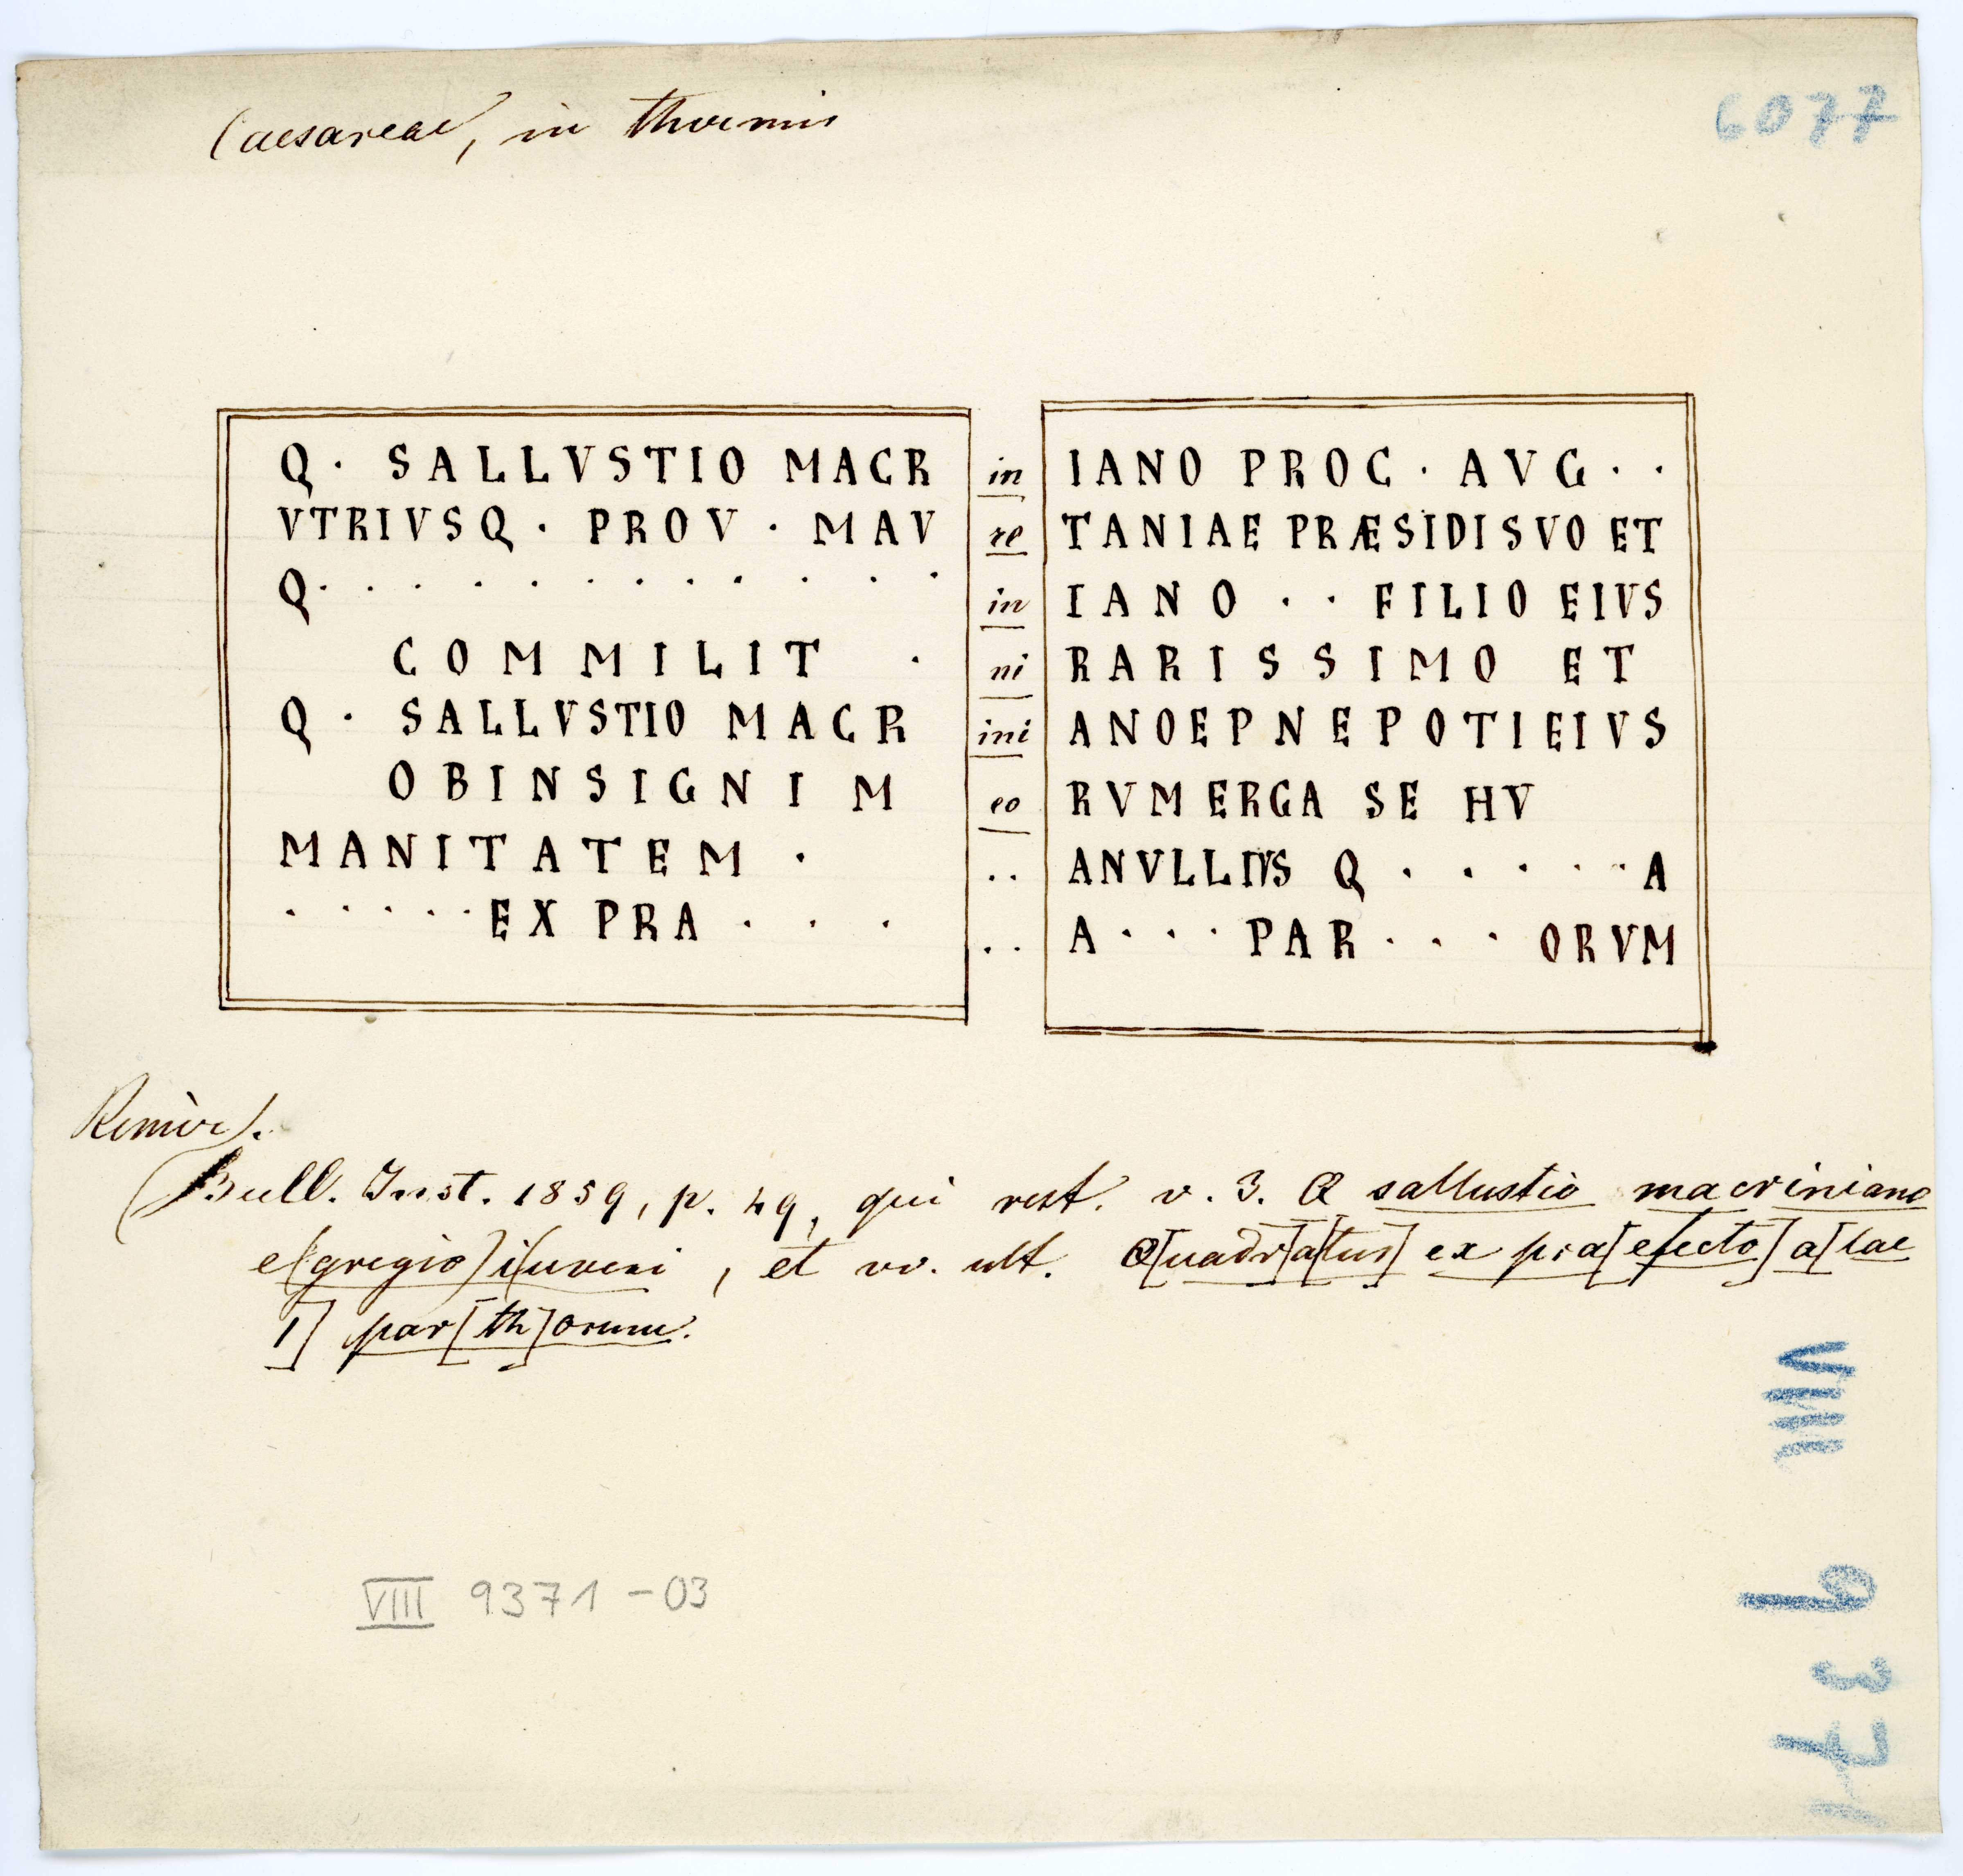 Caesareae, in thermis
6077
Q · SALLVSTIO MACR in IANO PROC · AVG · ·
VTRIVSQ · PROV · MAV re TANIAE PRÆSIDI SVO ET
Q · · · · · · · · · · · in IANO · · FILIO EIVS
COMMILIT · ni RARISSIMO ET
Q · SALLVSTIO MACR ini ANOEPNEPOTIEIVS
OBINSIGNI M eo RVM ERGA SE HV
MANITATEM · · · ANVLLIVS Q · · · · · A
· · · · · EX PRA · · · · · A · · · PAR · · · ORVM
Renier.
(Bull. Inst. 1859, p. 49, qui rest. v. 3. Q sallustio macriniano
e(gregio) i(uveni, et vv. ult. Q[uadr]a[tus] ex pra[efecto] a[lae
1] par[th]orum.
VIII 9371 - 03
VIII
9371